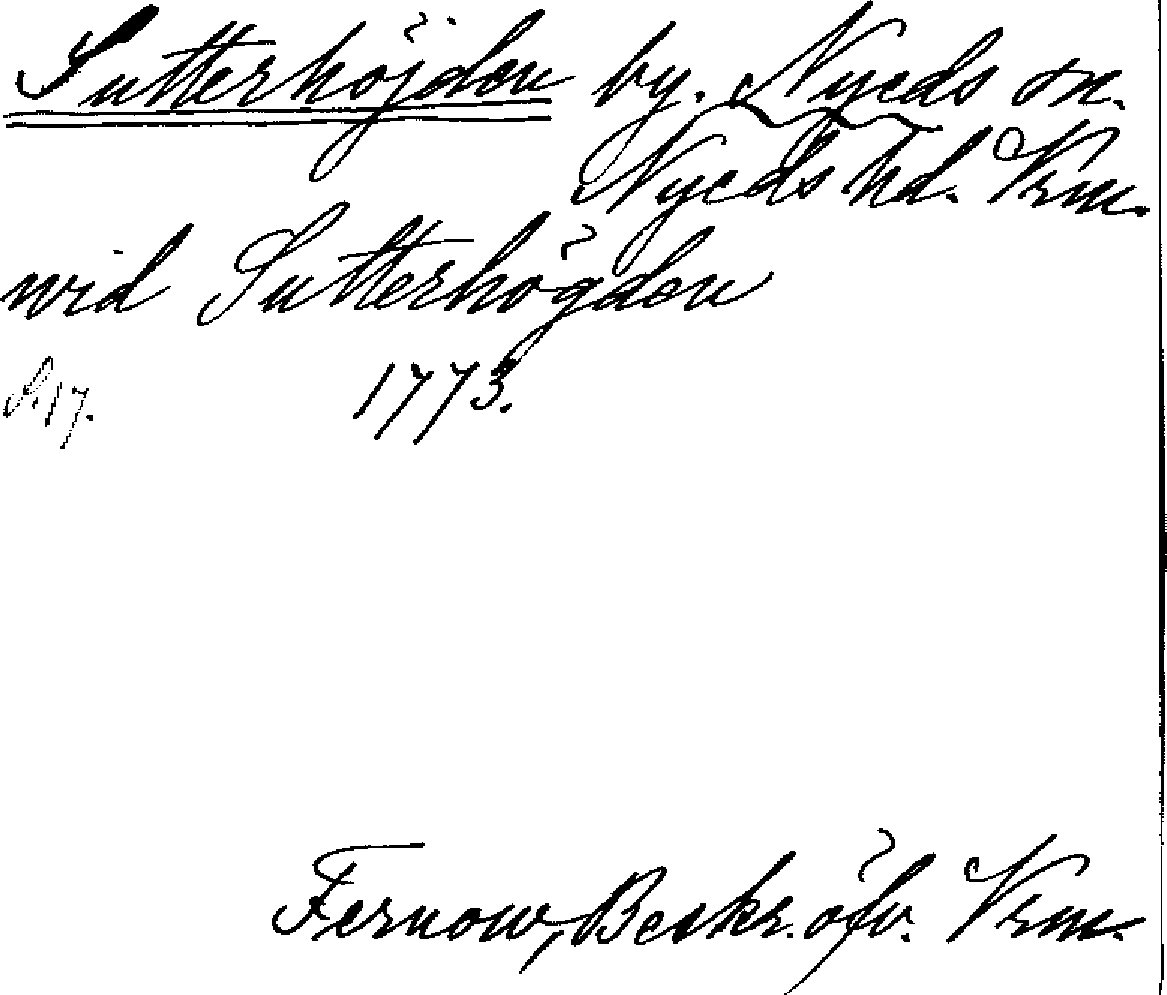 Sutterhöjden by. Nyeds sn.
Nyeds hd. Vrm.
wid Sutterhögden
S. 17. 1773.
Fernow, Beskr. öfv. Vrm.